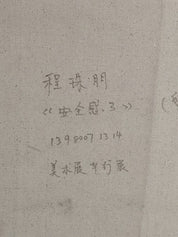 程珠明
《安全感.3》
1398007 1314
美术展平行展
(